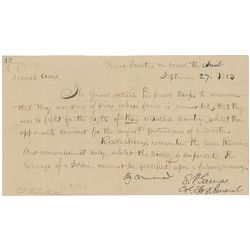 Head Quarters on board the Ariel
September 27, 1813
General Order
The General entreats his brave troops to remember
that they are sons of sires whose fame is immortal; that they
are to fight for the rights of their insulted country, whilst their
opponents combat for the unjust pretensions of a master.
Kentuckians, remember the river Raisin;
But remember it only, whilst the victory is suspended. The
revenge of a soldier cannot be gratified upon a fallen enemy.
By command
E. P. Gaines
Col. Adjt General